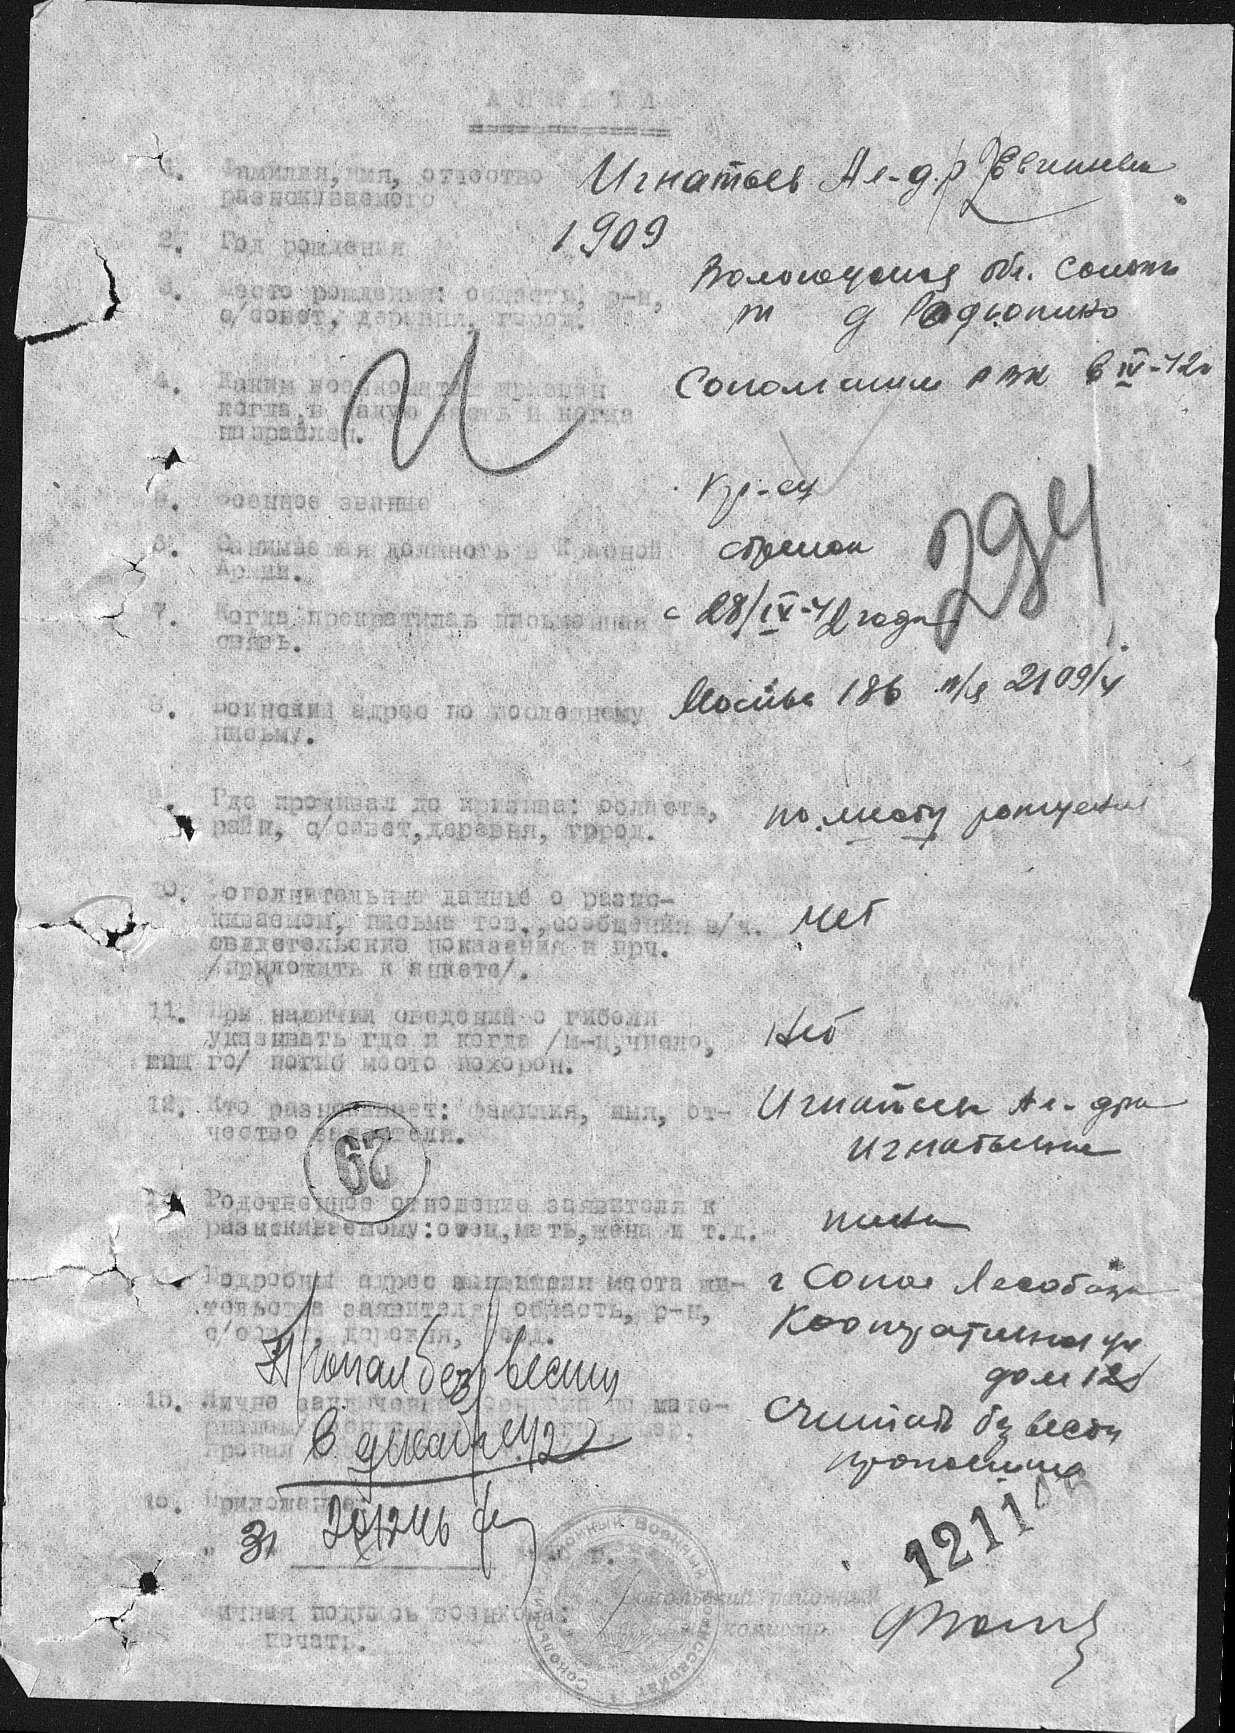 АНКЕТА
1. Фамилия, имя, отчество Игнатьев Ал-др
разыскиваемого
2. Год рождения 1909
3. Место рождения: область, р-н, Вологодская обл. Сокол
с/совет, деревня, город. д Родионико
4. Каким военкоматом призван Сокольским РВК в IV-42г
когда, в какую часть и когда
направлен.
И
5. Военное звание кр-ец
6. Занимаемая должность в Красной стрелок
Армии.
294
7. Когда прекратилась письменная с 28/IV-42 года
связь.
8. Воинский адрес по последнему Москва 186 п/я 2109/4
письму.
9. Где проживал до призыва: область, по месту рождения
район, с/совет, деревня, город.
10. Дополнительные данные о разыс-
киваемом, письма тов., сообщения в/ч. Нет
свидетельские показания и прч.
/приложить к анкете/.
11. При наличии сведений о гибели
указывать где и когда /м-ц, число, Нет
го/ погиб место похорон.
12. Кто разыскивает: фамилия, имя, от- Игнатьева Ал-дра
чество заявителя. Игнатьевна
29
13. Родственное отношение заявителя к
разыскиваемому: отец, мать, жена и т.д. жена
14. Подробный адрес жи- г Сокол Лесобаза
тельства заявителя: область, р-н, Кооперативная ул
с/совет, деревня, город. дом 12
Пропал без вести
15. мате- Считать без вести
в декабре 42 пропавшим
16. Приложение:
31 20/12 46
12114
Личная подпись военкома:
печать.
Сокольский районный